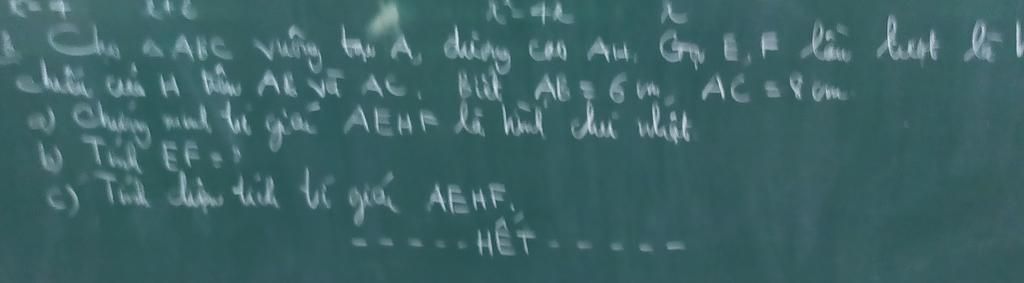 x²-4x x
Cho △ABC vuông tại A, đường cao AH. Gọi E, F lần lượt là h
chiếu của H trên AB và AC. Biết AB = 6 cm, AC = 8 cm.
a) Chứng minh tứ giác AEHF là hình chữ nhật.
b) Tính EF = ?
c) Tính diện tích tứ giác AEHF.
------HẾT------